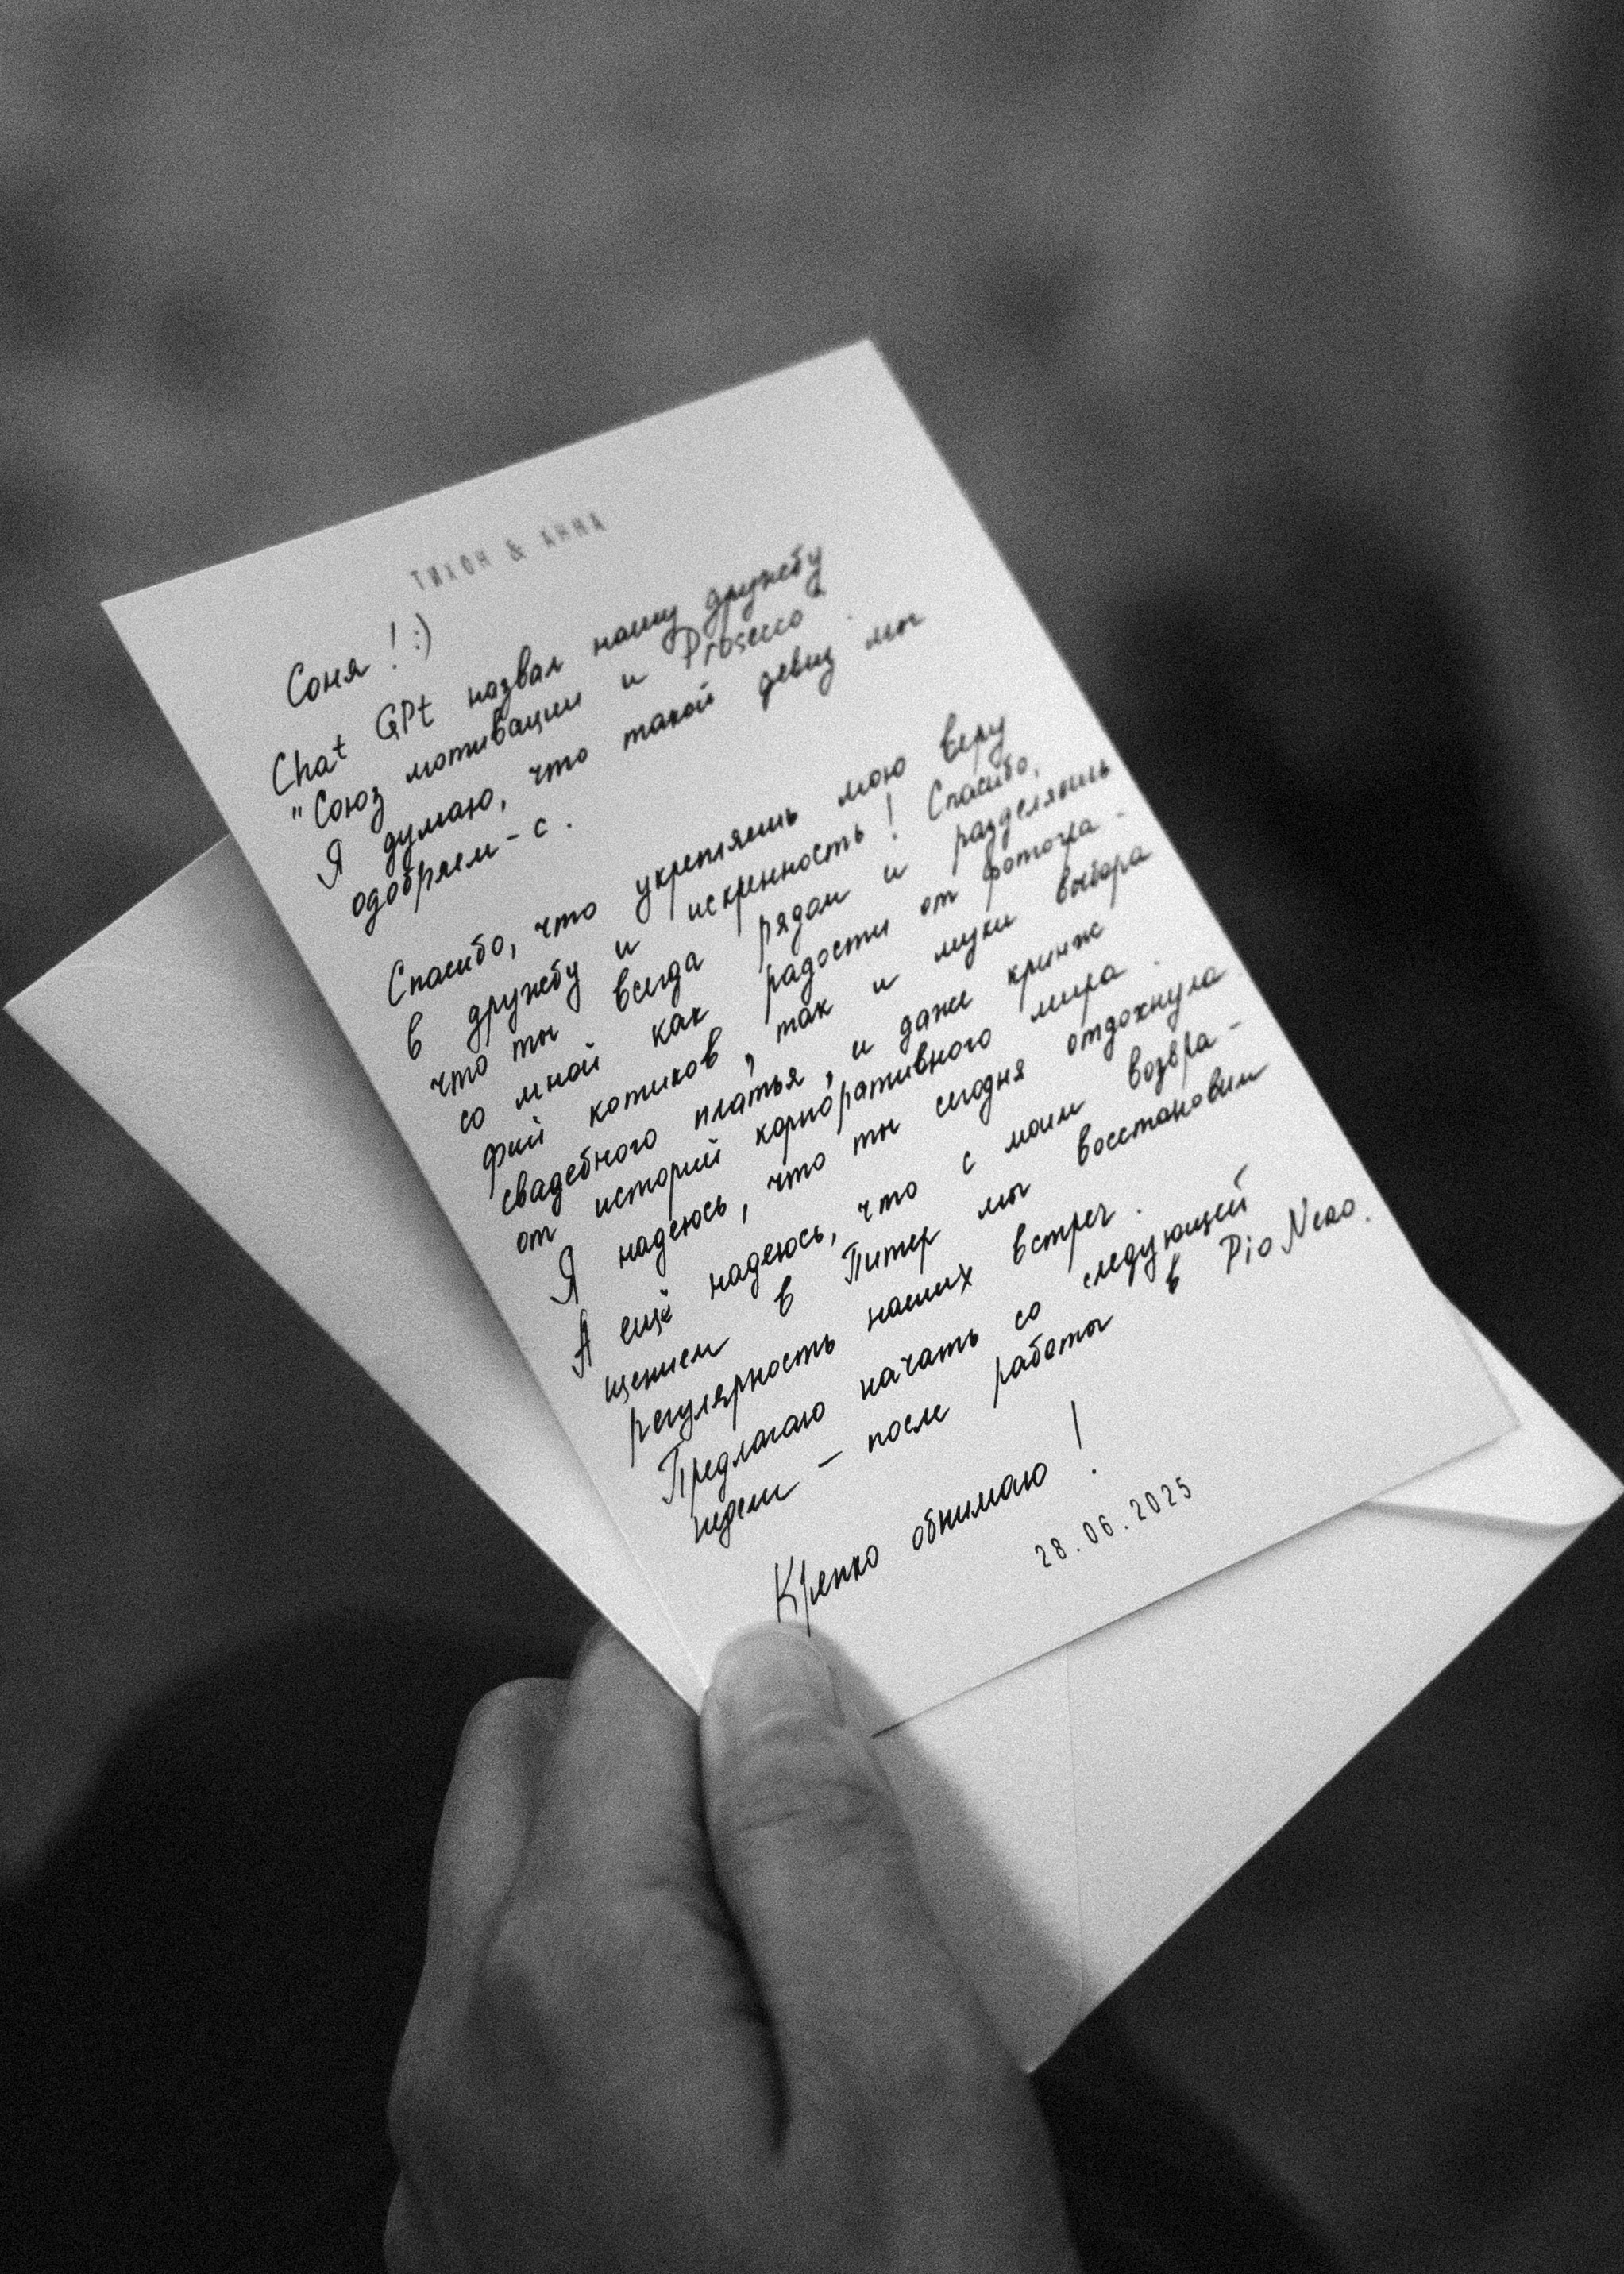 ТИХОН & АННА
Соня ! :)
Chat GPt назвал нашу дружбу
"Союз мотивации и Prosecco".
Я думаю, что такой девиз мы
одобряем-с.
Спасибо, что укрепляешь мою веру
в дружбу и искренность! Спасибо,
что ты всегда рядом и разделяешь
со мной как радости от фотогра-
фий котиков, так и муки выбора
свадебного платья, и даже кринж
от историй корпоративного мира.
Я надеюсь, что ты сегодня отдохнула
А ещё надеюсь, что с моим возвра-
щением в Питер мы восстановим
регулярность наших встреч.
Предлагаю начать со следующей
недели - после работы в Pio Nero.
Крепко обнимаю !
28.06.2025